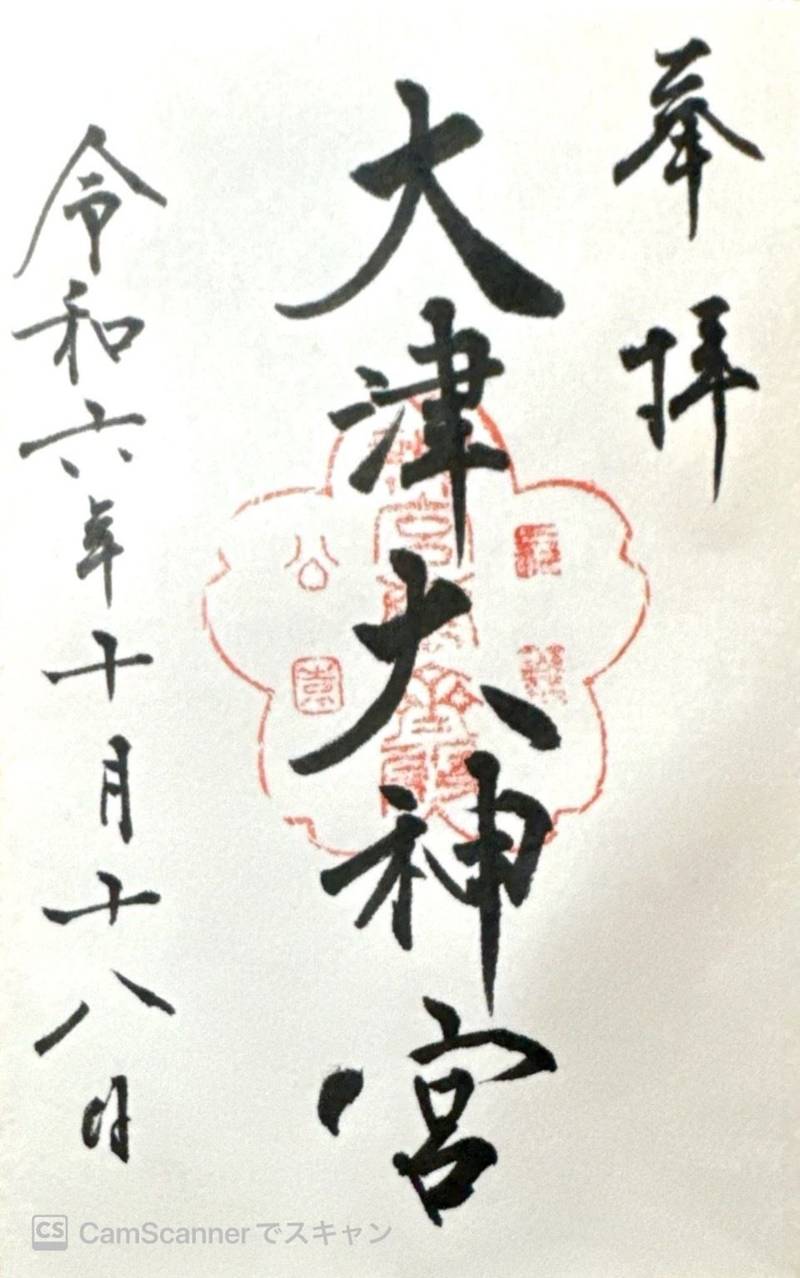 奉拝
大津大神宮
令和六年十月十八日
CS CamScannerでスキャン